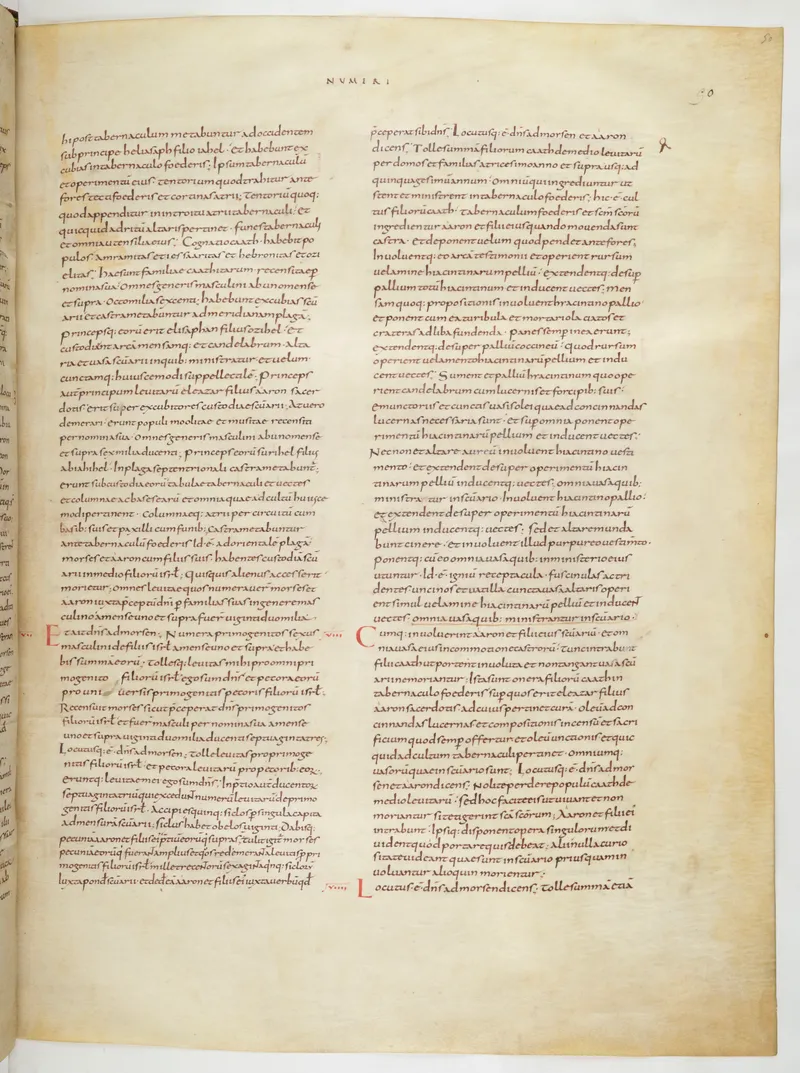 NUMERI
50
hi post tabernaculum metabuntur ad occidentem
sub principe heliasaph filio iahel· et habebunt ex
cubias in tabernaculo foederis; Ipsum tabernaculū
et operimentū eius· tentorium quod trahitur ante
fores tecta foederis et cortinas atrii; Tentoriū quoq:
quod appenditur in introitu atrii tabernaculi· et
quicquid ad ritū altaris pertinet· funes tabernaculi
et omnia utensilia eius; Cognatio caath· habebit po
pulos· amramitas et iessaaritas et hebronitas et ozi
elitas; hae sunt familiae caathitarum recensitae p
nomina sua· Omnes generis masculini ab uno mense
et supra· Octo milia sexcenti; habebunt excubias scū
arii et castrametabuntur ad meridianam plagā;
princepsq: eorū erit elisaphan filius ozihel· Et
custodient arcā mensamq: et candelabrum· alta
ria et uasa scūarii in quib: ministratur· et uelum·
cunctamq: huiuscemodi suppellectile; Princeps
autē principum leuitarū eleazar filius aaron sacer
dotis erit super excubitores custodiae scūarii; At uero
de merari· erunt populi moolitae et musitae· recensiti
per nomina sua· Omnes generis masculini ab uno mense
et supra sex milia ducenti; princeps eorū surihel filius
abiahihel· In plaga septentrionali castrametabunt;
erunt sub custodia eorū tabulae tabernaculi et uectes
et columnae ac bases earū et omnia quae ad cultū huiusce
modi pertinent· Columnaeq: atrii per circuitū cum
basib: suis et paxilli cum funib; Castrametabuntur
ante tabernaculū foederis· Id·ē· ad orientalē plagā
morses et aaron cum filiis suis· habentes custodiā scū
arii in medio filiorū isrl; quisquis alienus accesserit
morietur; omnes leuitae quos numerauer̄ morses et
aaron iuxta pceptū dn̄i p familias suas in genere mas
culino a mense uno et supra fuer̄ uiginti duo milia·
Et ait dn̄s ad morsen; Numera primogenitos sexus
masculini de filiis isrl· a mense uno et supra et habe
bis summā eorū; tollesq: leuitas mihi pro omni pri
mogenito filiorū isrl· ego sum dn̄s et pecora eorū
pro uniuersis primogenitis pecoris filiorū isrl·
Recensuit morses sicut pceperat dn̄s primogenitos
filiorū isrl· et fuer̄ masculi per nomina sua a mense
uno et supra uiginti duo milia ducenti septuaginta tres;
Locutusq:·ē· dn̄s ad morsen; tolle leuitas pro primoge
nitis filiorū isrl· et pecora leuitarū pro pecorib: eoꝝ·
eruntq: leuitae mei ego sum dn̄s; In p̄tio autē ducentoꝝ
septuaginta triū qui excedunt numerū leuitarū de primo
genitis filiorū isrl· Accipies quinq: siclos p singula capita
ad mensurā scūarii; siclus habet obolos uiginti; Dabisq:
pecuniā aaron et filiis ei p̄tiū eorū q̄ supra s̄; tulit igit̄ morses
pecuniā eorū q̄ fuerant amplius et quos redemerant a leuitis p pri
mogenitis filiorū isrl· mille trecentorū sexaginta qnq: siclorū
Iuxta pond scūarii et dedit eā aaron et filiis ei iuxta uerbū qd
p̄ceperat sibi dn̄s; Locutusq:·ē· dn̄s ad morsen et aaron
dicens; Tolle summā filiorum caath de medio leuitarū
per domos et familias a tricesimo anno et supra usq: ad
quinquagesimū annum· Omniū qui ingrediuntur ut
stent et ministrent in tabernaculo foederis; hic·ē· cul
tus filiorū caath· tabernaculum foederis et scm̄ scōrū
ingredientur aaron et filii eius quando mouenda sunt
castra· et deponent uelum quod pendet ante fores;
Inuoluentq: eo arcā testimonii et operient rursum
uelamine hiacinctinarum pelliū· extendentq: desup
pallium totū hiacinctinum et inducent uectes; men
sam quoq: propositionis inuoluent hiacinctino pallio·
et ponent cum ea turibula et mortariola ciatos et
crateras ad liba fundenda· panes semp in ea erunt;
extendentq: desuper palliū coccineū· quod rursum
operient uelamento hiacinctinarū pellium et indu
cent uectes; Sument et palliū hiacinctinum quo ope
rient candelabrum cum lucernis et forcipib: suis·
emunctoriis et cunctis uasis olei quae ad concinnandas
lucernas necessaria sunt· et sup omnia ponent ope
rimentū hiacinctinarū pellium et inducent uectes;
Nec non et altare aureū inuoluent hiacinctino uesti
mento· et extendent desuper operimentū hiacin
tinarum pellium inducentq: uectes; omnia uasa quib:
ministratur in scūario· Inuoluent hiacinctino pallio:
et extendent desuper operimentū hiacinctinarū
pellium inducentq: uectes; sed et altare munda
bunt cinere· et inuoluent illud purpureo uestim̄to·
ponentq: cū eo omnia uasa quib: in ministerio eius
utuntur· Id·ē· igniū receptacula· fuscinulas ac tri
dentes uncinos et uatilla cuncta uasa altaris operi
ent simul uelamine hiacinctinarū pelliū et inducent
uectes· omnia uasa quib: ministrantur in scūario·
Cumq: inuoluerint aaron et filii eius scūariū· et om
nia uasa eius in commotione castrorū· Tunc intrabunt
filii caath ut portent inuoluta et non tangant uasa scū
arii ne moriantur; Ista sunt onera filiorū caath in
tabernaculo foederis sup quos erit eleazar filius
aaron sacerdotis ad cuius pertinet cura· oleū ad con
cinnandas lucernas et compositionis incensū et sacri
ficium quod semp offertur et oleū unctionis et quic
quid ad cultum tabernaculi pertinet· omniumq:
uasorū quae in scūario sunt; Locutusq:·ē· dn̄s ad mor
sen et aaron dicens; Nolite perdere populū caath de
medio leuitarū· sed hoc facite eis ut uiuant et non
moriantur si tetigerint scā scōrum; Aaron et filii ei
intrabunt· Ipsiq: disponent opera singulorum et di
uident quod portare quis debeat; alii nulla curio
sitate uideant quae sunt in scūario priusquam in
uoluantur alioquin morientur;
Locutus·ē· dn̄s ad morsen dicens; tolle summā etiā